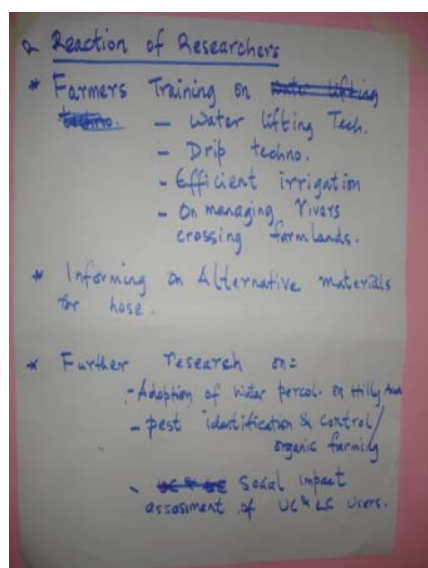 Reaction of Researchers
* Farmers Training on water lifting
techno. - Water lifting Tech.
- Drip techno.
- Efficient irrigation
- On managing rivers
crossing farmlands.
* Informing on Alternative materials
for hose.
* Further research on:
- Adoption of water percol. on Hilly
- pest identification & control/
organic farming
- Social impact
assesment of UC & LC users.